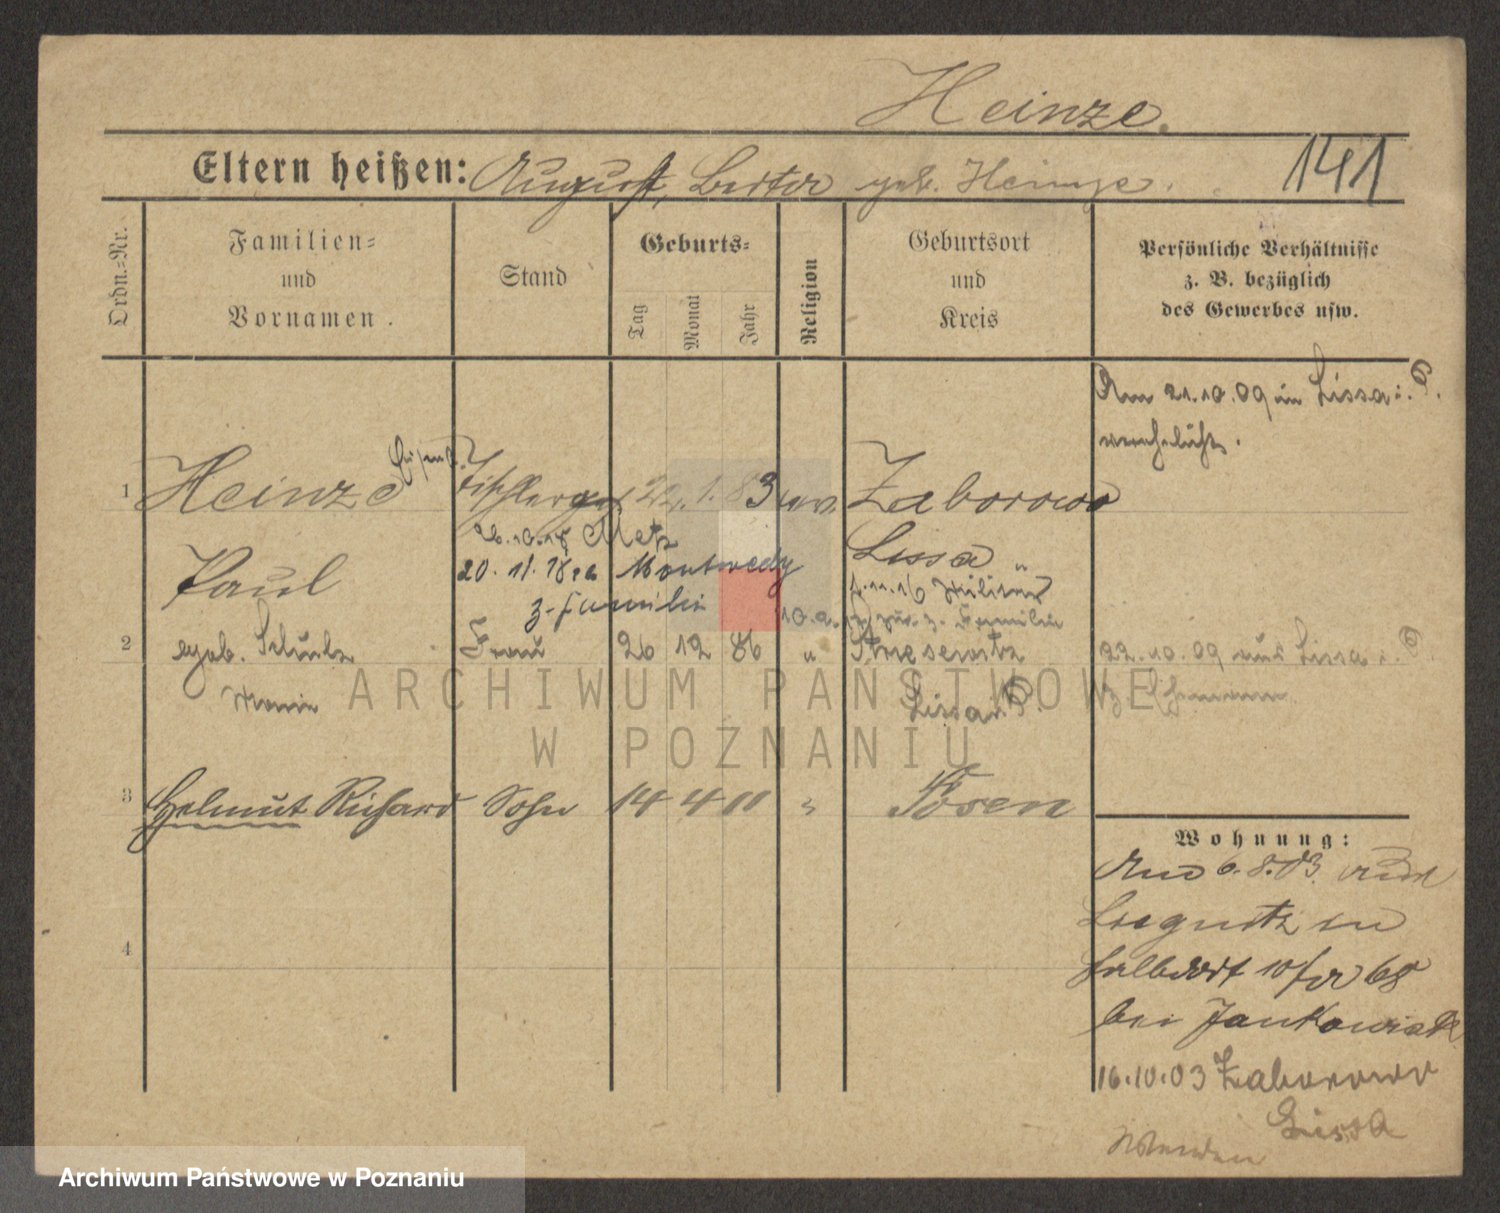 Heinze.
Eltern heißen: August, geb. Heinze.
141
Ordn.-Nr.
Familien- und Vornamen.
Stand
Geburts-
Tag
Monat
Jahr
Religion
Geburtsort und Kreis
Persönliche Verhältnisse z. B. bezüglich des Gewerbes usw.
Am 21.10.09 in Lissa i. P.
verehelicht.
1 Heinze Tischlerges. 22. 1. 83 ev. Zaborowo
Metz
Paul Lissa
20. 11. Montmedy
z. Familie
1.11.16 Militär
z. Familie
2 geb. Schulz Frau 26 12 86 "
22.10.09 aus Lissa i. P.
Lissa i. P.
ARCHIWUM PAŃSTWOWE
W POZNANIU
3 Helmut Richard Sohn 14 4 11 " Posen
Wohnung:
6.8.03
Liegnitz in
4
Halbdorf 68
bei Jankowiak
16.10.03 Zaborowo
Lissa
Archiwum Państwowe w Poznaniu